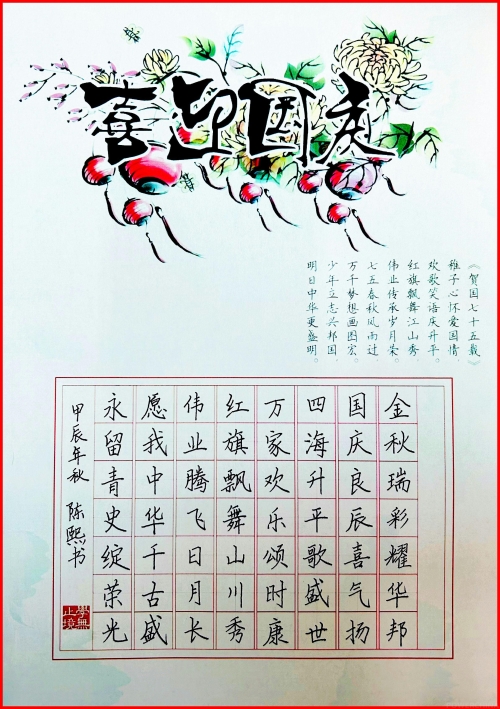 喜迎国庆
《贺国七十五载》
稚子心怀爱国情，
欢歌笑语庆升平。
红旗飘舞江山秀，
伟业传承岁月荣。
七五春秋风雨过，
万千梦想画图宏。
少年立志兴邦国，
明日中华更盛明。
金秋瑞彩耀华邦
国庆良辰喜气扬
四海升平歌盛世
万家欢乐颂时康
红旗飘舞山川秀
伟业腾飞日月长
愿我中华千古盛
永留青史绽荣光
甲辰年秋 陈熙书
學無止境